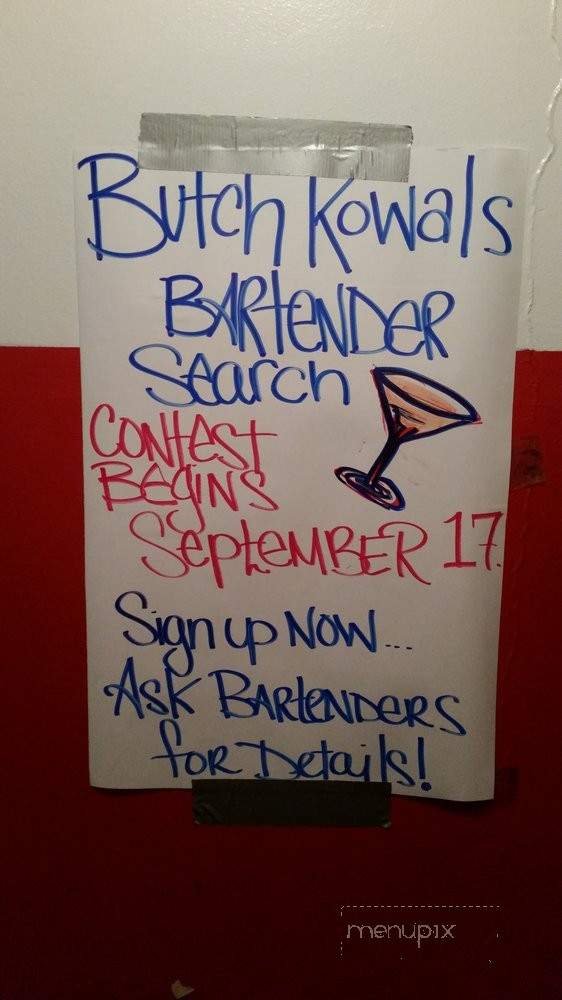 Butch Kowals
BARTENDER
Search
CONTEST
BEGINS
SEPTEMBER 17
Sign up NOW...
ASK BARTENDERS
FOR Details!
menupix